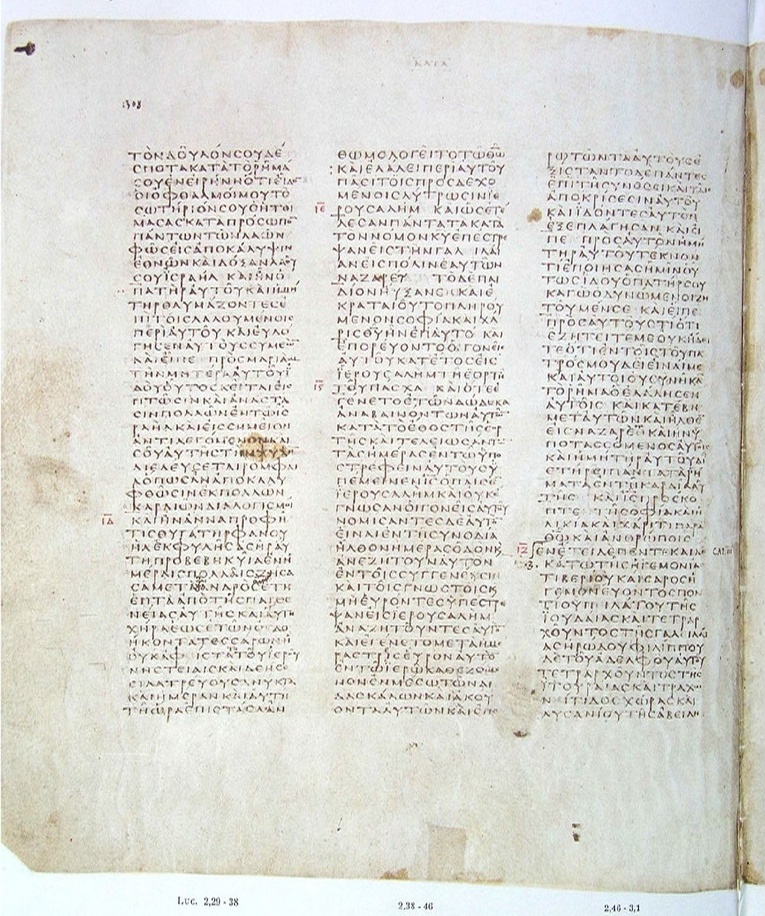 ΚΑΤΑ
1308
ΤΟΝΔΟΥΛΟΝCΟΥΔΕ
CΠΟΤΑΚΑΤΑΤΟΡΗΜΑ
CΟΥΕΝΕΙΡΗΝΗΟΤΙΕΙΔΟ
ΟΙΟΦΘΑΛΜΟΙΜΟΥΤΟ
CΩΤΗΡΙΟΝCΟΥΟΗΤΟΙ
ΜΑCΑCΚΑΤΑΠΡΟCΩΠΟ
ΠΑΝΤΩΝΤΩΝΛΑΩΝ
ΦΩCΕΙCΑΠΟΚΑΛΥΨΙΝ
ΕΘΝΩΝΚΑΙΔΟΞΑΝΛΑΟΥ
CΟΥΙCΡΑΗΛ ΚΑΙΗΝΟ
ΠΑΤΗΡΑΥΤΟΥΚΑΙΗΜΗ
ΤΗΡΘΑΥΜΑΖΟΝΤΕCΕ
ΠΙΤΟΙCΛΑΛΟΥΜΕΝΟΙC
ΠΕΡΙΑΥΤΟΥ ΚΑΙΕΥΛΟ
ΓΗCΕΝΑΥΤΟΥCCΥΜΕ
ΚΑΙΕΙΠΕ ΠΡΟCΜΑΡΙΑΜ
ΤΗΝΜΗΤΕΡΑΑΥΤΟΥΙ
ΔΟΥΟΥΤΟCΚΕΙΤΑΙΕΙC
ΠΤΩCΙΝΚΑΙΑΝΑCΤΑ
CΙΝΠΟΛΛΩΝΕΝΤΩΙC
ΡΑΗΛΚΑΙΕΙCCΗΜΕΙΟΝ
ΑΝΤΙΛΕΓΟΜΕΝΟΝΚΑΙ
CΟΥΑΥΤΗCΤΗΝΨΥΧΗ
ΔΙΕΛΕΥCΕΤΑΙΡΟΜΦΑΙ
ΑΟΠΩCΑΝΑΠΟΚΑΛΥ
ΦΘΩCΙΝΕΚΠΟΛΛΩΝ
ΚΑΡΔΙΩΝΔΙΑΛΟΓΙCΜΟΙ
ΙΔ ΚΑΙΗΝΑΝΝΑΠΡΟΦΗ
ΤΙCΘΥΓΑΤΗΡΦΑΝΟΥ
ΗΛΕΚΦΥΛΗCΑCΗΡΑΥ
ΤΗΠΡΟΒΕΒΗΚΥΙΑΕΝΗ
ΜΕΡΑΙCΠΟΛΛΑΙCΖΗCΑ
CΑΜΕΤΑΑΝΔΡΟCΕΤΗ
ΕΠΤΑΑΠΟΤΗCΠΑΡΘΕ
ΝΕΙΑCΑΥΤΗCΚΑΙΑΥΤΗ
ΧΗΡΑΕΩCΕΤΩΝΟΓΔΟ
ΗΚΟΝΤΑΤΕCCΑΡΩΝΗ
ΟΥΚΑΦΙCΤΑΤΟΤΟΥΙΕΡΟΥ
ΝΗCΤΕΙΑΙCΚΑΙΔΕΗCΕ
CΙΛΑΤΡΕΥΟΥCΑΝΥΚΤΑ
ΚΑΙΗΜΕΡΑΝΚΑΙΑΥΤΗ
ΤΗΩΡΑΕΠΙCΤΑCΑΑΝ
ΘΩΜΟΛΟΓΕΙΤΟΤΩΘΩ
ΚΑΙΕΛΑΛΕΙΠΕΡΙΑΥΤΟΥ
ΠΑCΙΤΟΙCΠΡΟCΔΕΧΟ
ΜΕΝΟΙCΛΥΤΡΩCΙΝΙΕ
ΙΕ ΡΟΥCΑΛΗΜ ΚΑΙΩCΕΤΕ
ΛΕCΑΝΠΑΝΤΑΤΑΚΑΤΑ
ΤΟΝΝΟΜΟΝΚΥΕΠΕCΤΡΕ
ΨΑΝΕΙCΤΗΝΓΑΛΙΛΑΙ
ΑΝΕΙCΠΟΛΙΝΕΑΥΤΩΝ
ΝΑΖΑΡΕΤ ΤΟΔΕΠΑΙ
ΔΙΟΝΗΥΞΑΝΕΚΑΙΕ
ΚΡΑΤΑΙΟΥΤΟΠΛΗΡΟΥ
ΜΕΝΟΝCΟΦΙΑΚΑΙΧΑ
ΡΙCΘΥΗΝΕΠΑΥΤΟ ΚΑΙ
ΕΠΟΡΕΥΟΝΤΟΟΙΓΟΝΕΙC
ΑΥΤΟΥΚΑΤΕΤΟCΕΙC
ΙΕΡΟΥCΑΛΗΜΤΗΕΟΡΤΗ
ΙϚ ΤΟΥΠΑCΧΑ ΚΑΙΟΤΕΕ
ΓΕΝΕΤΟΕΤΩΝΔΩΔΕΚΑ
ΑΝΑΒΑΙΝΟΝΤΩΝΑΥΤΩ
ΚΑΤΑΤΟΕΘΟCΤΗCΕΟΡ
ΤΗCΚΑΙΤΕΛΕΙΩCΑΝΤΩ
ΤΑCΗΜΕΡΑCΕΝΤΩΥΠΟ
CΤΡΕΦΕΙΝΑΥΤΟΥCΥ
ΠΕΜΕΙΝΕΝΙΗCΟΠΑΙCΕ
ΙΕΡΟΥCΑΛΗΜΚΑΙΟΥΚΕ
ΓΝΩCΑΝΟΙΓΟΝΕΙCΑΥΤΟΥ
ΝΟΜΙCΑΝΤΕCΔΕΑΥΤΟ
ΕΙΝΑΙΕΝΤΗCΥΝΟΔΙΑ
ΗΛΘΟΝΗΜΕΡΑCΟΔΟΝΚΑΙ
ΑΝΕΖΗΤΟΥΝΑΥΤΟΝ
ΕΝΤΟΙCCΥΓΓΕΝΕΥCΙΝ
ΚΑΙΤΟΙCΓΝΩCΤΟΙCΚΑΙ
ΜΗΕΥΡΟΝΤΕCΥΠΕCΤΡΕ
ΨΑΝΕΙCΙΕΡΟΥCΑΛΗΜ
ΑΝΑΖΗΤΟΥΝΤΕCΑΥΤΟ
ΚΑΙΕΓΕΝΕΤΟΜΕΤΑΗΜΕ
ΡΑCΤΡΕΙCΕΥΡΟΝΑΥΤΟ
ΕΝΤΩΙΕΡΩΚΑΘΕΖΟΜΕ
ΝΟΝΕΝΜΕCΩΤΩΝΔΙ
ΔΑCΚΑΛΩΝΚΑΙΑΚΟΥ
ΟΝΤΑΑΥΤΩΝΚΑΙΕΠΕ
ΡΩΤΩΝΤΑΑΥΤΟΥCΕ
ΞΙCΤΑΝΤΟΔΕΠΑΝΤΕC
ΕΠΙΤΗCΥΝΕCΕΙΚΑΙΤΑΙC
ΑΠΟΚΡΙCΕCΙΝΑΥΤΟΥ
ΚΑΙΙΔΟΝΤΕCΑΥΤΟΝ
ΕΞΕΠΛΑΓΗCΑΝ ΚΑΙΕΙ
ΠΕ ΠΡΟCΑΥΤΟΝΗΜΗ
ΤΗΡΑΥΤΟΥΤΕΚΝΟΝ
ΤΙΕΠΟΙΗCΑCΗΜΙΝΟΥ
ΤΩCΙΔΟΥΟΠΑΤΗΡCΟΥ
ΚΑΓΩΟΔΥΝΩΜΕΝΟΙΖΗ
ΤΟΥΜΕΝCΕ ΚΑΙΕΙΠΕ
ΠΡΟCΑΥΤΟΥCΤΙΟΤΙ
ΕΖΗΤΕΙΤΕΜΕΟΥΚΗΔΕΙ
ΤΕΟΤΙΕΝΤΟΙCΤΟΥΠΑ
ΤΡΟCΜΟΥΔΕΙΕΙΝΑΙΜΕ
ΚΑΙΑΥΤΟΙΟΥCΥΝΗΚΑ
ΤΟΡΗΜΑΟΕΛΑΛΗCΕΝ
ΑΥΤΟΙC ΚΑΙΚΑΤΕΒΗ
ΜΕΤΑΥΤΩΝΚΑΙΗΛΘΕ
ΕΙCΝΑΖΑΡΕΤΚΑΙΗΝΥ
ΠΟΤΑCCΟΜΕΝΟCΑΥΤΟΙC
ΚΑΙΗΜΗΤΗΡΑΥΤΟΥΔΙ
ΕΤΗΡΕΙΠΑΝΤΑΤΑΡΗ
ΜΑΤΑΕΝΤΗΚΑΡΔΙΑΑΥ
ΤΗC ΚΑΙΙCΠΡΟΕΚΟ
ΠΤΕ ΤΗCΟΦΙΑΚΑΙΗ
ΛΙΚΙΑΚΑΙΧΑΡΙΤΙΠΑΡΑ
ΘΩΚΑΙΑΝΘΡΩΠΟΙC
ΙΖ ΕΝΕΤΕΙΔΕΠΕΝΤΕΚΑΙΔΕ
ΚΑΤΩΤΗCΗΓΕΜΟΝΙΑC
ΤΙΒΕΡΙΟΥΚΑΙCΑΡΟCΗ
ΓΕΜΟΝΕΥΟΝΤΟCΠΟΝ
ΤΙΟΥΠΙΛΑΤΟΥΤΗC
ΙΟΥΔΑΙΑCΚΑΙΤΕΤΡΑΡ
ΧΟΥΝΤΟCΤΗCΓΑΛΙΛΑΙ
ΑCΗΡΩΔΟΥΦΙΛΙΠΠΟΥ
ΔΕΤΟΥΑΔΕΛΦΟΥΑΥΤΟΥ
ΤΕΤΡΑΡΧΟΥΝΤΟCΤΗC
ΙΤΟΥΡΑΙΑCΚΑΙΤΡΑΧΩ
ΝΙΤΙΔΟCΧΩΡΑCΚΑΙ
ΛΥCΑΝΙΟΥΤΗCΑΒΕΙΛΗ
Luc. 2,29 - 38
2,38 - 46
2,46 - 3,1